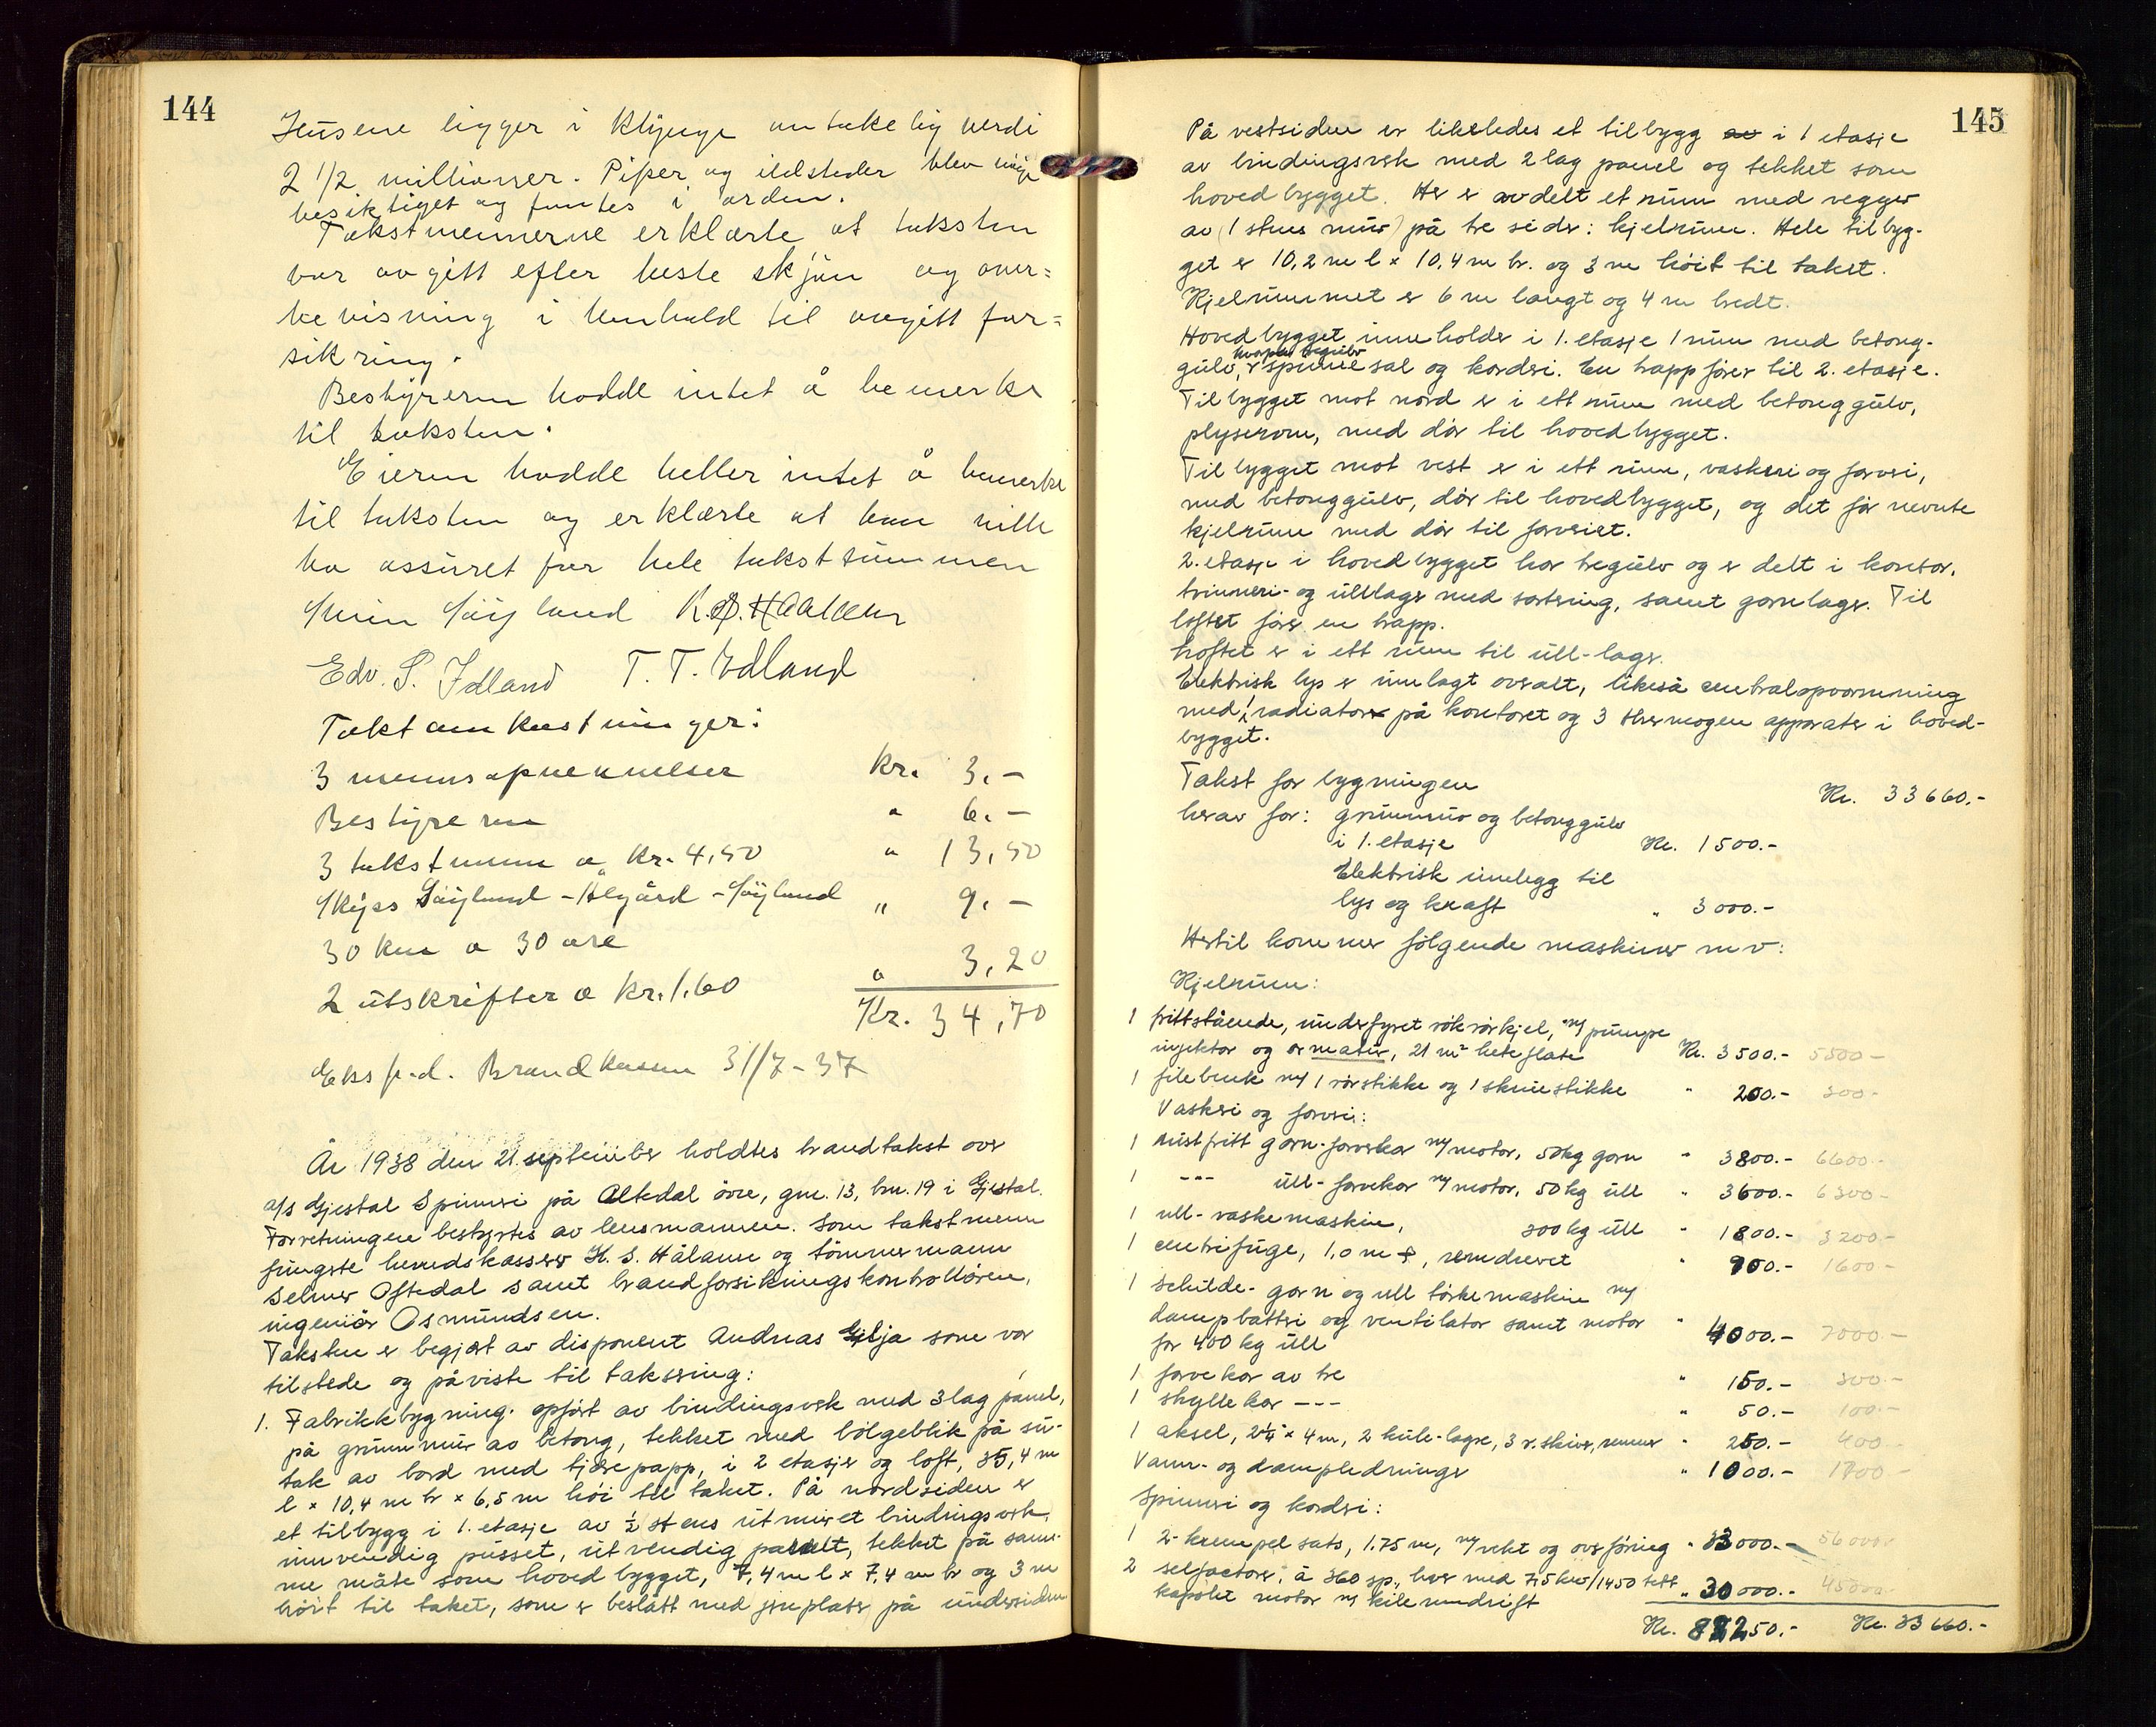 144
Husene ligger i Klynge antakelig verdi
2 1/2 millioner. Piper og ildsteder blev nøye
besiktiget og funtes i orden.
Takstmennerne erklærte at taksten
var avgitt efter beste skjøn og over=
bevisning i henhold til avgitt for=
sikring.
Bestyreren hadde intet å bemerke
til taksten.
Eieren hadde heller intet å bemerke
til taksten og erklærte at han ville
ha assurert for hele takstsummen
K. S. Haaland
Edv. S. Idland T. T. Edland
Takstomkostninger:
3 mennsopnevnelser kr. 3.-
Bestyreren " 6.-
3 takstmenn a kr. 4,50 " 13,50
Skyss Søyland - Ålgård - Søyland " 9.-
30 km a 30 øre
2 utskrifter a kr. 1,60 " 3,20
Kr. 34,70
Eksp.d. Brandkassen 31/7-37
År 1938 den 21. september holdtes brandtakst over
a/s Gjestal Spinneri på Ålkdal övre, gnr. 13, bnr. 19 i Gjestal.
Forretningen bestyrtes av lensmannen. Som takstmenn
fungerte herredskasserer K. S. Håland og tömmermann
Selmer Oftedal samt brandforsikringskontrollören,
ingeniör Osmundsen.
Taksten er begjært av disponent Andreas Gilja som var
tilstede og påviste til taksering:
1. Fabrikkbygning. opfört av bindingsverk med 3 lag panel,
på grunnmur av betong, tekket med bölgeblikk på su-
tak av bord med tjærepapp, i 2 etasjer og loft, 35,4 m
l × 10,4 m br × 6,5 m höi til taket. På nordsiden er
et tilbygg i 1. etasje av 1/2 stens utmuret bindingsverk,
innvendig pusset, utvendig panelt, tekket på sam-
me måte som hovedbygget, 7,4 m l × 7,4 m br og 3 m
höit til taket, som er beslått med jernplater på undersiden
145
På vestsiden er likeledes et tilbygg av i 1 etasje
av bindingsverk med 2 lag panel og tekket som
hovedbygget. Her er avdelt et rum med vegger
av (1 stens mur) på tre sider: kjelrum. Hele tilbyg-
get er 10,2 m l × 10,4 m br. og 3 m höit til takst.
Kjelrummet er 6 m langt og 4 m bredt.
Hovedbygget inneholder i 1. etasje 1 rum med betong-
hvorpå tregulv
gulv, spinnesal og karderi. En trapp förer til 2. etasje.
Tilbygget mot nord er i ett rum med betonggulv,
plyserom, med dör til hovedbygget.
Tilbygget mot vest er i ett rum, vaskeri og farveri,
med betonggulv, dör til hovedbygget, og det för nevnte
kjelrum med dör til farveriet.
2. etasje i hovedbygget har tregulv og er delt i kontor,
tvinneri- og ullager med sortering, samt garnlager. Til
loftet förer en trapp.
Loftet er i ett rum til ull-lager.
Elektrisk lys er innlagt overalt, likeså centralopvarmning
med 1 radiator på kontoret og 3 thermogen apparater i hoved-
bygget.
Takst for bygningen Kr. 33660.-
herav for: grunnmur og betonggulv
i 1. etasje Kr. 1500.-
Elektrisk innlegg til
lys og kraft " 3000.-
Hertil kommer fölgende maskiner m v:
Kjelrum:
1 frittstående, underfyret rökrörkjel, m/ pumpe
injektor og armatur, 21 m² heteflate Kr. 3500.- 5500-
1 filebenk m/ 1 rörstikke og 1 skruestikke " 200.- 300-
Vaskeri og farveri:
1 rustfritt garn-farvekar m/ motor, 50 kg garn " 3800.- 6600-
1 --- ull-farvekar m/ motor, 50 kg ull " 3600.- 6300-
1 ull-vaskemaskin, 300 kg ull " 1800.- 3200-
1 centrifuge, 1,0 m, remdrevet " 900.- 1600-
1 Schilde- garn og ull törkemaskin m/
dampbatteri og ventilator samt motor
for 400 kg ull " 4000.- 7000-
1 farvekar av tre " 150.- 300-
1 skyllekar --- " 50.- 100-
1 aksel, 2 1/4" × 4 m, 2 kule-lagre, 3 r.skiver, remmer " 250.- 400
Vann- og dampledninger " 1000.- 1700-
Spinneri og karderi:
1 2-krempel sats, 1.75 m, m/ vekt og overföring " 33000.- 56000
2 selfactorer, à 360 sp., hver med 7,5 kw/1450 tett
kapslet motor m/ kileremdrift " 30000.- 45000
Kr. 82250.- Kr. 33660.-